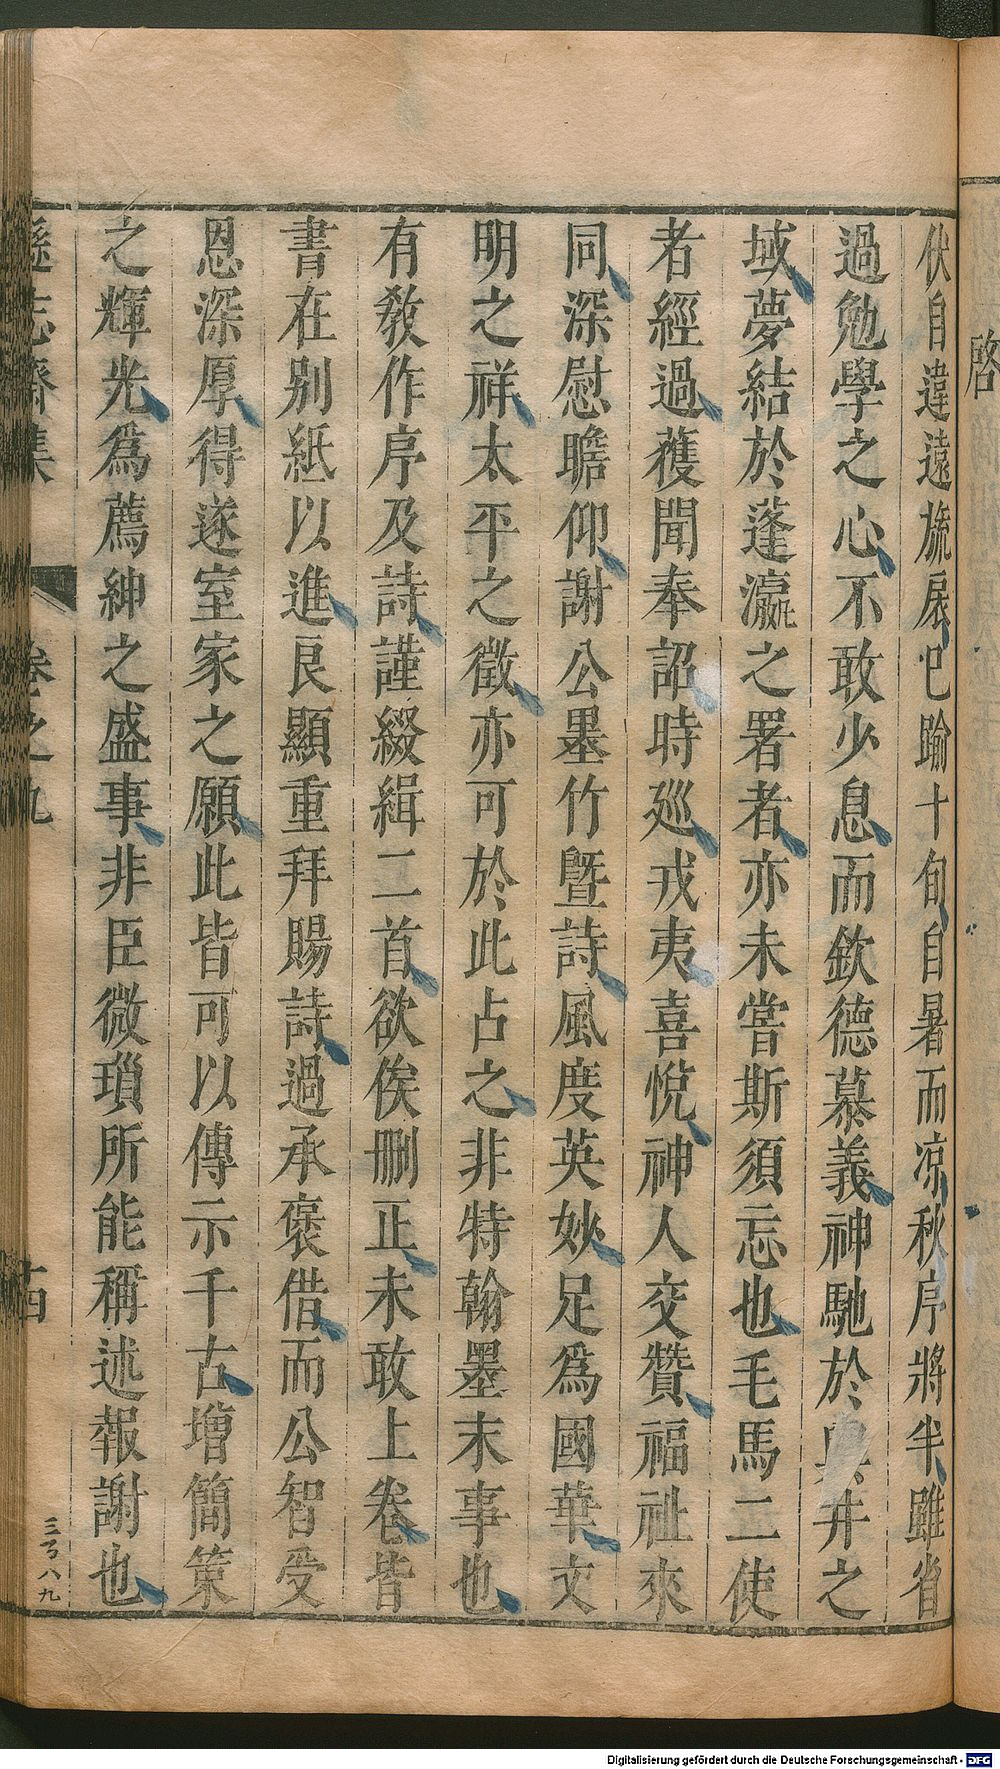 啓
伏自違遠旒扆已踰十旬自暑而凉秋序將半雖省
過勉學之心不敢少息而欽德慕義神馳於井之
域夢結於蓬瀛之署者亦未嘗斯須忘也毛馬二使
者經過獲聞奉詔時廵戎夷喜悅神人交贊福祉來
同深慰瞻仰謝公墨竹曁詩風度英妙足爲國華文
明之祥太平之徵亦可於此占之非特翰墨末事也
有敎作序及詩謹綴緝二首欲俟刪正未敢上卷皆
書在别紙以進良顯重拜賜詩過承褒借而公智受
恩深厚得遂室家之願此皆可以傳示千古增簡策
之輝光爲薦紳之盛事非臣微瑣所能稱述報謝也
遜志齋集
卷之九
十四
三百八九
Digitalisierung gefördert durch die Deutsche Forschungsgemeinschaft - DFG